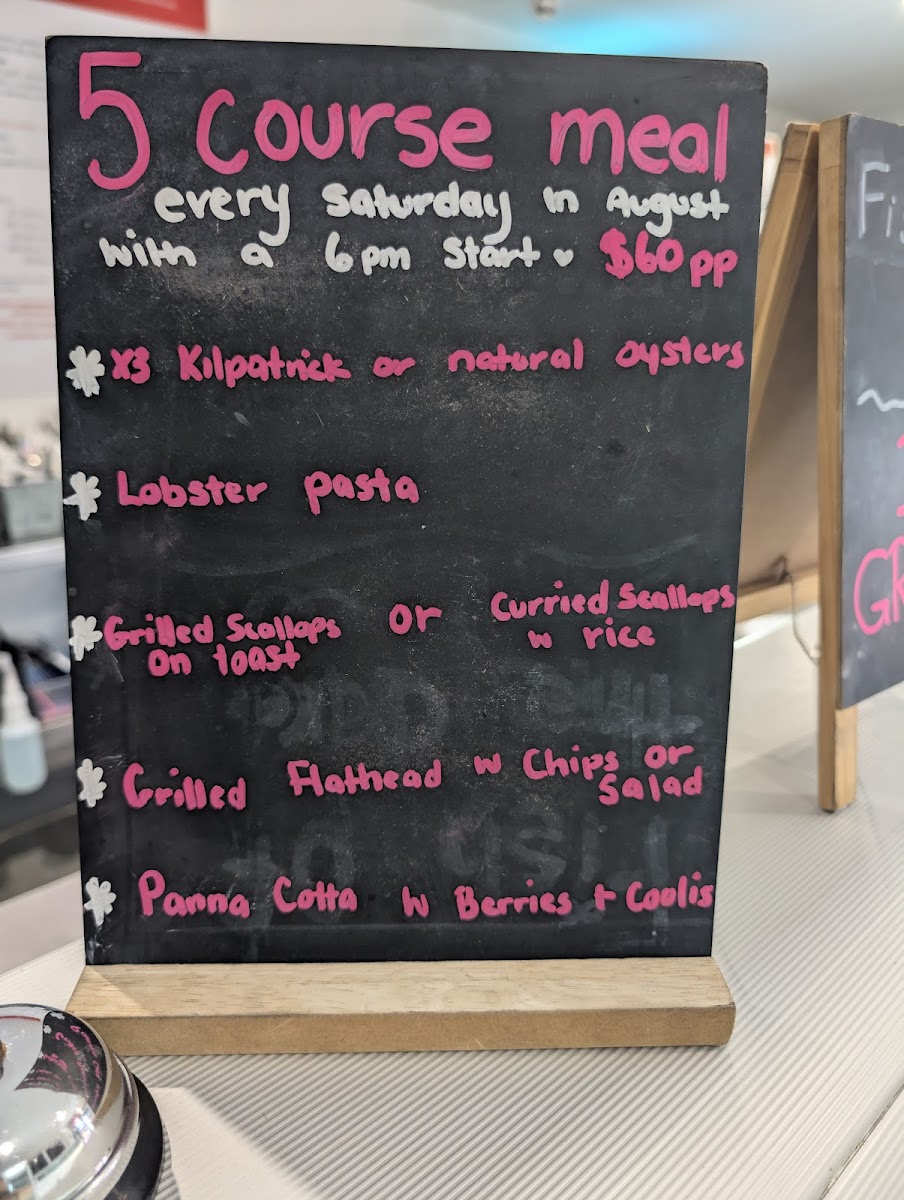 5 Course meal
every Saturday in August
with a 6pm Start $60pp
x3 Kilpatrick or natural oysters
Lobster pasta
Grilled Scallops or Curried Scallops
on toast w rice
Grilled Flathead w Chips or
Salad
Panna Cotta w Berries + Coolis